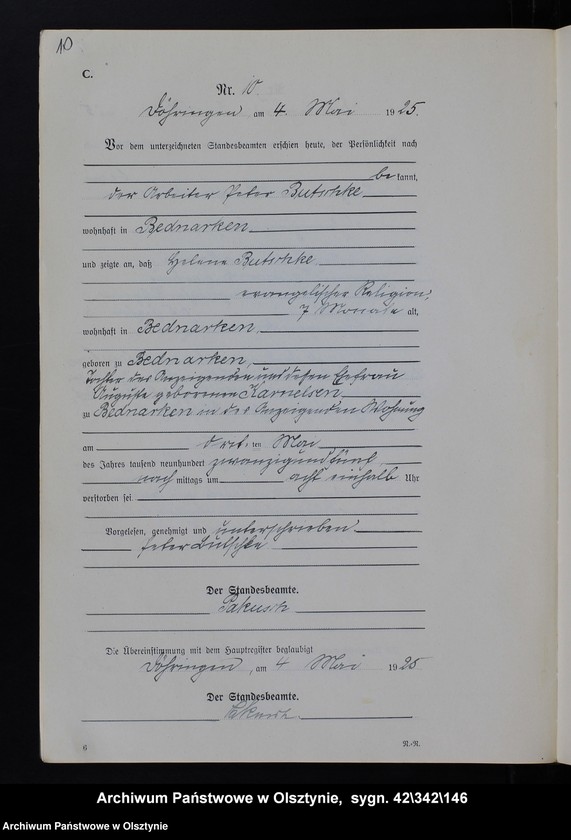 10
C.
Nr. 10.
Döhringen am 4. Mai 1925.
Vor dem unterzeichneten Standesbeamten erschien heute, der Persönlichkeit nach
bekannt,
der Arbeiter Peter Butschke
wohnhaft in Bednarken
und zeigte an, daß Helene Butschke
evangelischer Religion,
7 Monate alt,
wohnhaft in Bednarken,
geboren zu Bednarken,
Tochter des Anzeigenden und dessen Ehefrau
Auguste geborenen Karnelsen,
zu Bednarken in des Anzeigenden Wohnung
am drei ten Mai
des Jahres tausend neunhundert zwanzigundfünf
nach mittags um acht einhalb Uhr
verstorben sei.
Vorgelesen, genehmigt und unterschrieben
Peter Butschke
Der Standesbeamte.
Die Übereinstimmung mit dem Hauptregister beglaubigt
Döhringen, am 4 Mai 1925
Der Standesbeamte.
6 N.-R.
Archiwum Państwowe w Olsztynie, sygn. 42\342\146
Archiwum Państwowe w Olsztynie